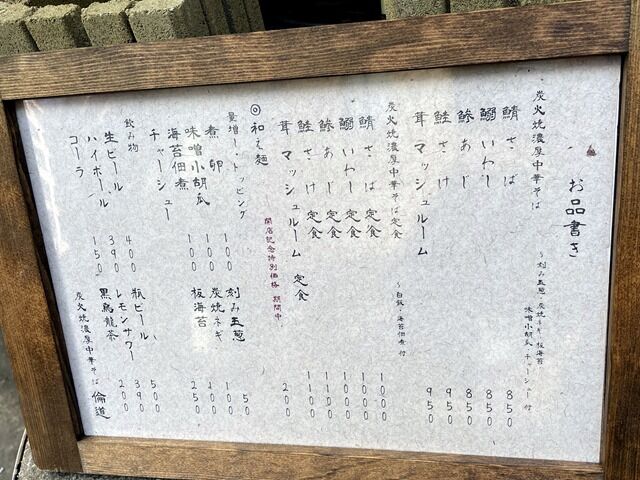 お品書き
炭火焼濃厚中華そば
〜刻み玉葱・炭焼ネギ・板海苔
味噌小胡瓜 チャーシュー付
鯖 さば 850
鰯 いわし 850
鯵 あじ 850
鮭 さけ 950
茸 マッシュルーム 950
炭火焼濃厚中華そば定食 〜白飯・海苔佃煮付
鯖 さば 定食 1000
鰯 いわし 定食 1000
鯵 あじ 定食 1000
鮭 さけ 定食 1100
茸 マッシュルーム 定食 1100
◎和え麺 200
開店記念特別価格 期間中
量増し・トッピング
煮卵 100 刻み玉葱 50
味噌小胡瓜 100 炭焼ネギ 100
海苔佃煮 100 板海苔 100
チャーシュー 250
飲み物
生ビール 400 瓶ビール 500
ハイボール 390 レモンサワー 390
コーラ 150 黒烏龍茶 200
炭火焼濃厚中華そば 倫道